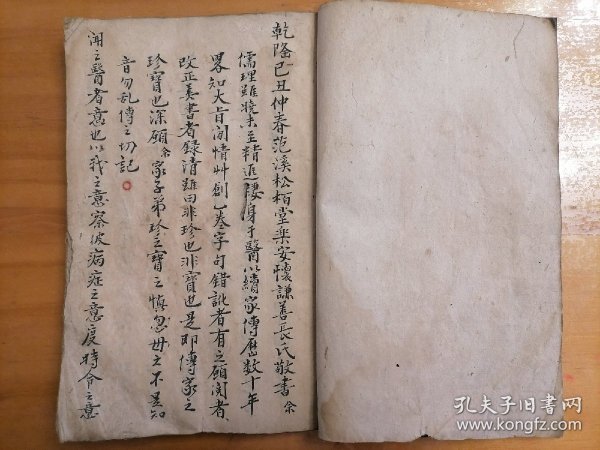 乾隆己丑仲春范溪松柏堂樂安懷謙善長氏敬書 余
儒理雖曉未至精進棲身于醫以續家傳歷數十年
畧知大旨閒情艸創乙卷字句錯訛者有之願閱者
改正善書者錄清雖曰非珍也非寶也是即傳家之
珍寶也深願余家子弟珍之寶之慎忽毋之不
音勿乱傳之切記
闻之醫者意也以我之意察彼病症之意度時令之意
孔夫子旧书网
www.kongfz.com